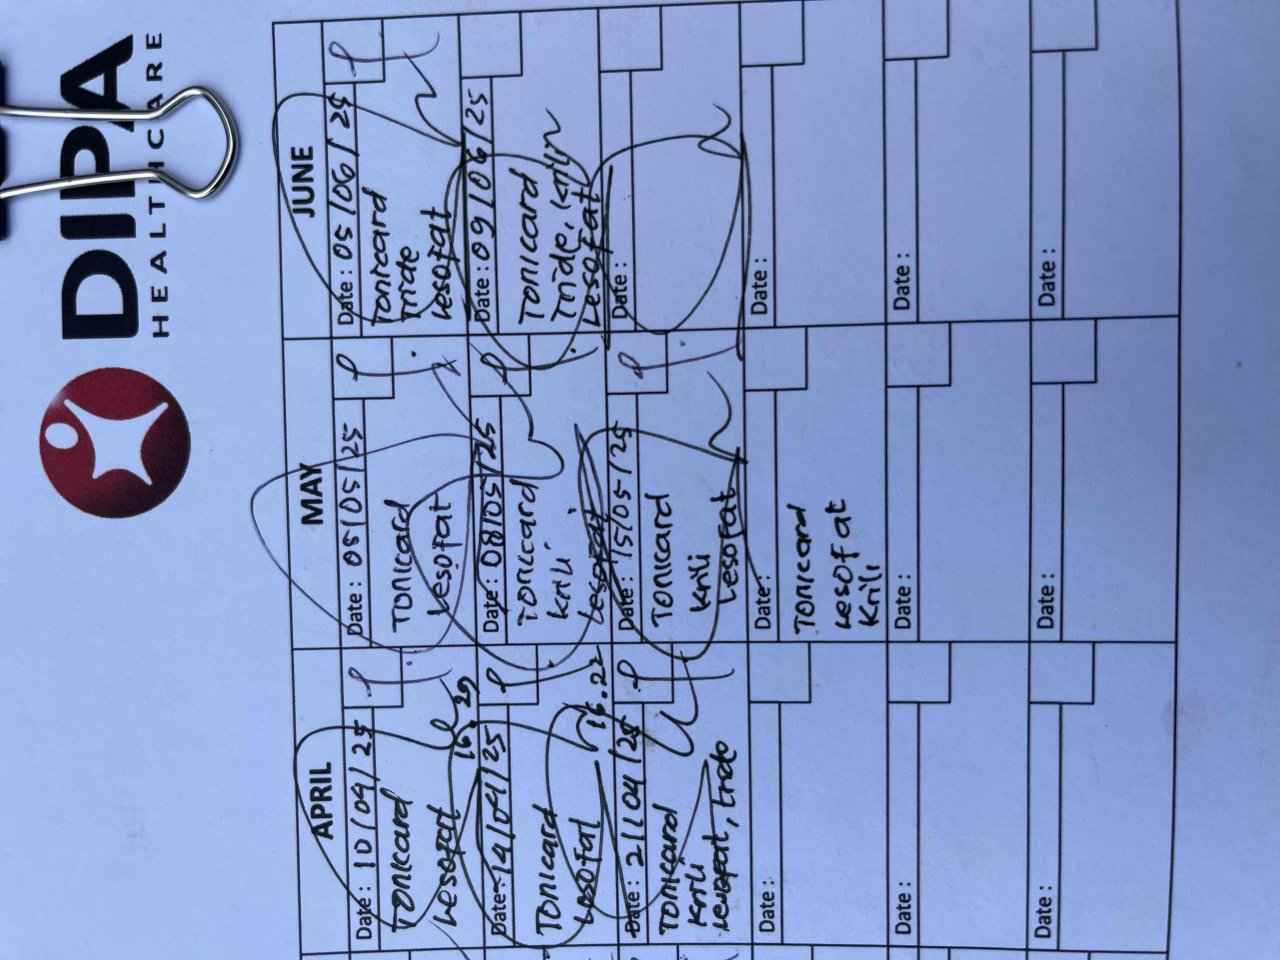 DIPA
HEALTHCARE
APRIL
Date : 10/04/25
Tonicard
Lesofat
16.29
Date : 14/04/25
Tonicard
Lesofat
16.22
Date : 21/04/25
Tonicard
Krili
Lesofat, tride
Date :
Date :
Date :
MAY
Date : 05/05/25
Tonicard
Lesofat
Date : 08/05/25
Tonicard
Krili
Lesofat
Date : 15/05/25
Tonicard
Krili
Lesofat
Date :
Tonicard
Lesofat
Krili
Date :
Date :
JUNE
Date : 05/06/25
Tonicard
Tride
Lesofat
Date : 09/06/25
Tonicard
Tride,
Lesofat
Date :
Date :
Date :
Date :